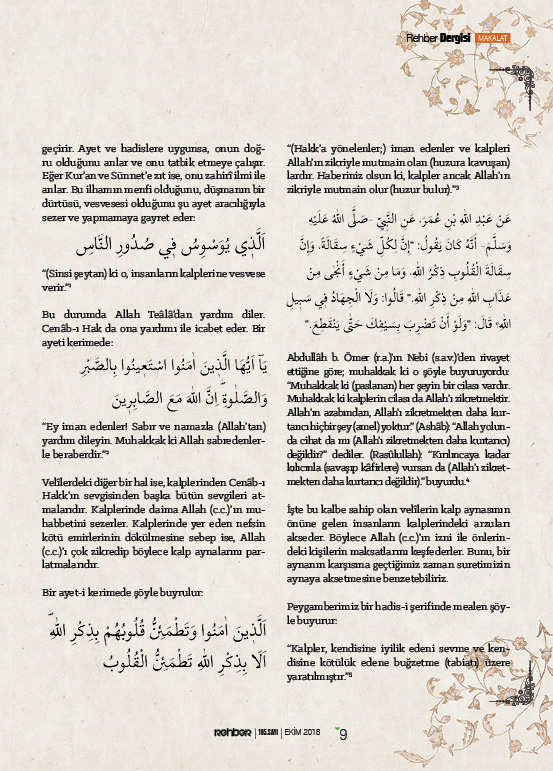 Rehber Dergisi MAKALAT
geçirir. Ayet ve hadislere uygunsa, onun doğ-
ru olduğunu anlar ve onu tatbik etmeye çalışır.
Eğer Kur'an ve Sünnet'e zıt ise, onu zahirî ilmi ile
anlar. Bu ilhamın menfi olduğunu, düşmanın bir
dürtüsü, vesvesesi olduğunu şu ayet aracılığıyla
sezer ve yapmamaya gayret eder:
اَلَّذ۪ي يُوَسْوِسُ ف۪ي صُدُورِ النَّاسِ
“(Sinsi şeytan) ki o, insanların kalplerine vesvese
verir.”¹
Bu durumda Allah Teâlâ'dan yardım diler.
Cenâb-ı Hak da ona yardımı ile icabet eder. Bir
ayeti kerimede:
يَآ اَيُّهَا الَّذ۪ينَ اٰمَنُوا اسْتَع۪ينُوا بِالصَّبْرِ
وَالصَّلٰوةِۜ اِنَّ اللّٰهَ مَعَ الصَّابِر۪ينَ
“Ey iman edenler! Sabır ve namazla (Allah'tan)
yardım dileyin. Muhakkak ki Allah sabredenler-
le beraberdir.”²
Velîlerdeki diğer bir hal ise, kalplerinden Cenâb-ı
Hakk'ın sevgisinden başka bütün sevgileri at-
malarıdır. Kalplerinde daima Allah (c.c.)'ın mu-
habbetini sezerler. Kalplerinde yer eden nefsin
kötü emirlerinin dökülmesine sebep ise, Allah
(c.c.)'ı çok zikredip böylece kalp aynalarını par-
latmalarıdır.
Bir ayet-i kerimede şöyle buyrulur:
اَلَّذ۪ينَ اٰمَنُوا وَتَطْمَئِنُّ قُلُوبُهُمْ بِذِكْرِ اللّٰهِۜ
اَلَا بِذِكْرِ اللّٰهِ تَطْمَئِنُّ الْقُلُوبُ
“(Hakk'a yönelenler;) iman edenler ve kalpleri
Allah'ın zikriyle mutmain olan (huzura kavuşan)
lardır. Haberiniz olsun ki, kalpler ancak Allah'ın
zikriyle mutmain olur (huzur bulur).”³
عَنْ عَبْدِ اللّٰهِ بْنِ عُمَرَ، عَنِ النَّبِيِّ -صَلَّى اللّٰهُ عَلَيْهِ
وَسَلَّمَ- أَنَّهُ كَانَ يَقُولُ: "إِنَّ لِكُلِّ شَيْءٍ سِقَالَةً، وَإِنَّ
سِقَالَةَ الْقُلُوبِ ذِكْرُ اللّٰهِ، وَمَا مِنْ شَيْءٍ أَنْجَى مِنْ
عَذَابِ اللّٰهِ مِنْ ذِكْرِ اللّٰهِ." قَالُوا: وَلَا الْجِهَادُ فِي سَبِيلِ
اللّٰهِ؟ قَالَ: "وَلَوْ أَنْ تَضْرِبَ بِسَيْفِكَ حَتَّى يَنْقَطِعَ."
Abdullâh b. Ömer (r.a.)'ın Nebi (s.a.v.)'den rivayet
ettiğine göre; muhakkak ki o şöyle buyuruyordu:
“Muhakkak ki (paslanan) her şeyin bir cilası vardır.
Muhakkak ki kalplerin cilası da Allah'ı zikretmektir.
Allah'ın azabından, Allah'ı zikretmekten daha kur-
tarıcı hiçbir şey (amel) yoktur.” (Ashâb): “Allah yolun-
da cihat da mı (Allah'ı zikretmekten daha kurtarıcı)
değildir?” dediler. (Rasûlullah): “Kırılıncaya kadar
kılıcınla (savaşıp kâfirlere) vursan da (Allah'ı zikret-
mekten daha kurtarıcı değildir).” buyurdu.⁴
İşte bu kalbe sahip olan velîlerin kalp aynasının
önüne gelen insanların kalplerindeki arzuları
akseder. Böylece Allah (c.c.)'ın izni ile önlerin-
deki kişilerin maksatlarını keşfederler. Bunu, bir
aynanın karşısına geçtiğimiz zaman suretimizin
aynaya aksetmesine benzetebiliriz.
Peygamberimiz bir hadis-i şerifinde mealen şöy-
le buyurur:
“Kalpler, kendisine iyilik edeni sevme ve ken-
disine kötülük edene buğzetme (tabiatı) üzere
yaratılmıştır.”⁵
REHBER | 185.SAYI | EKİM 2018 9